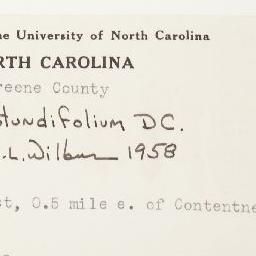 e University of North Carolina
RTH CAROLINA
reene County
tundifolium DC.
.L. Wilbur 1958
t, 0.5 mile e. of Contentne